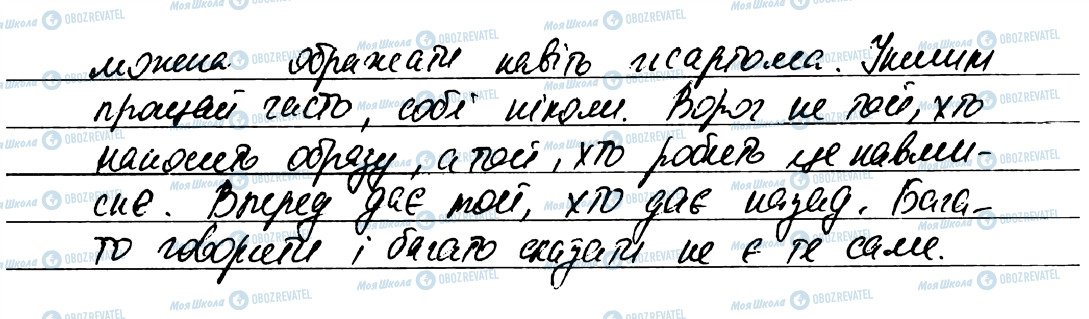 можна ображати навіть жартома. Іншим
прощай часто, собі ніколи. Ворог не той, хто
наносить образу, а той, хто робить це навми-
сне. Вперед дає той, хто дає назад. Бага-
то говорити і багато сказати не є те саме.
Моя Школа OBOZREVATEL